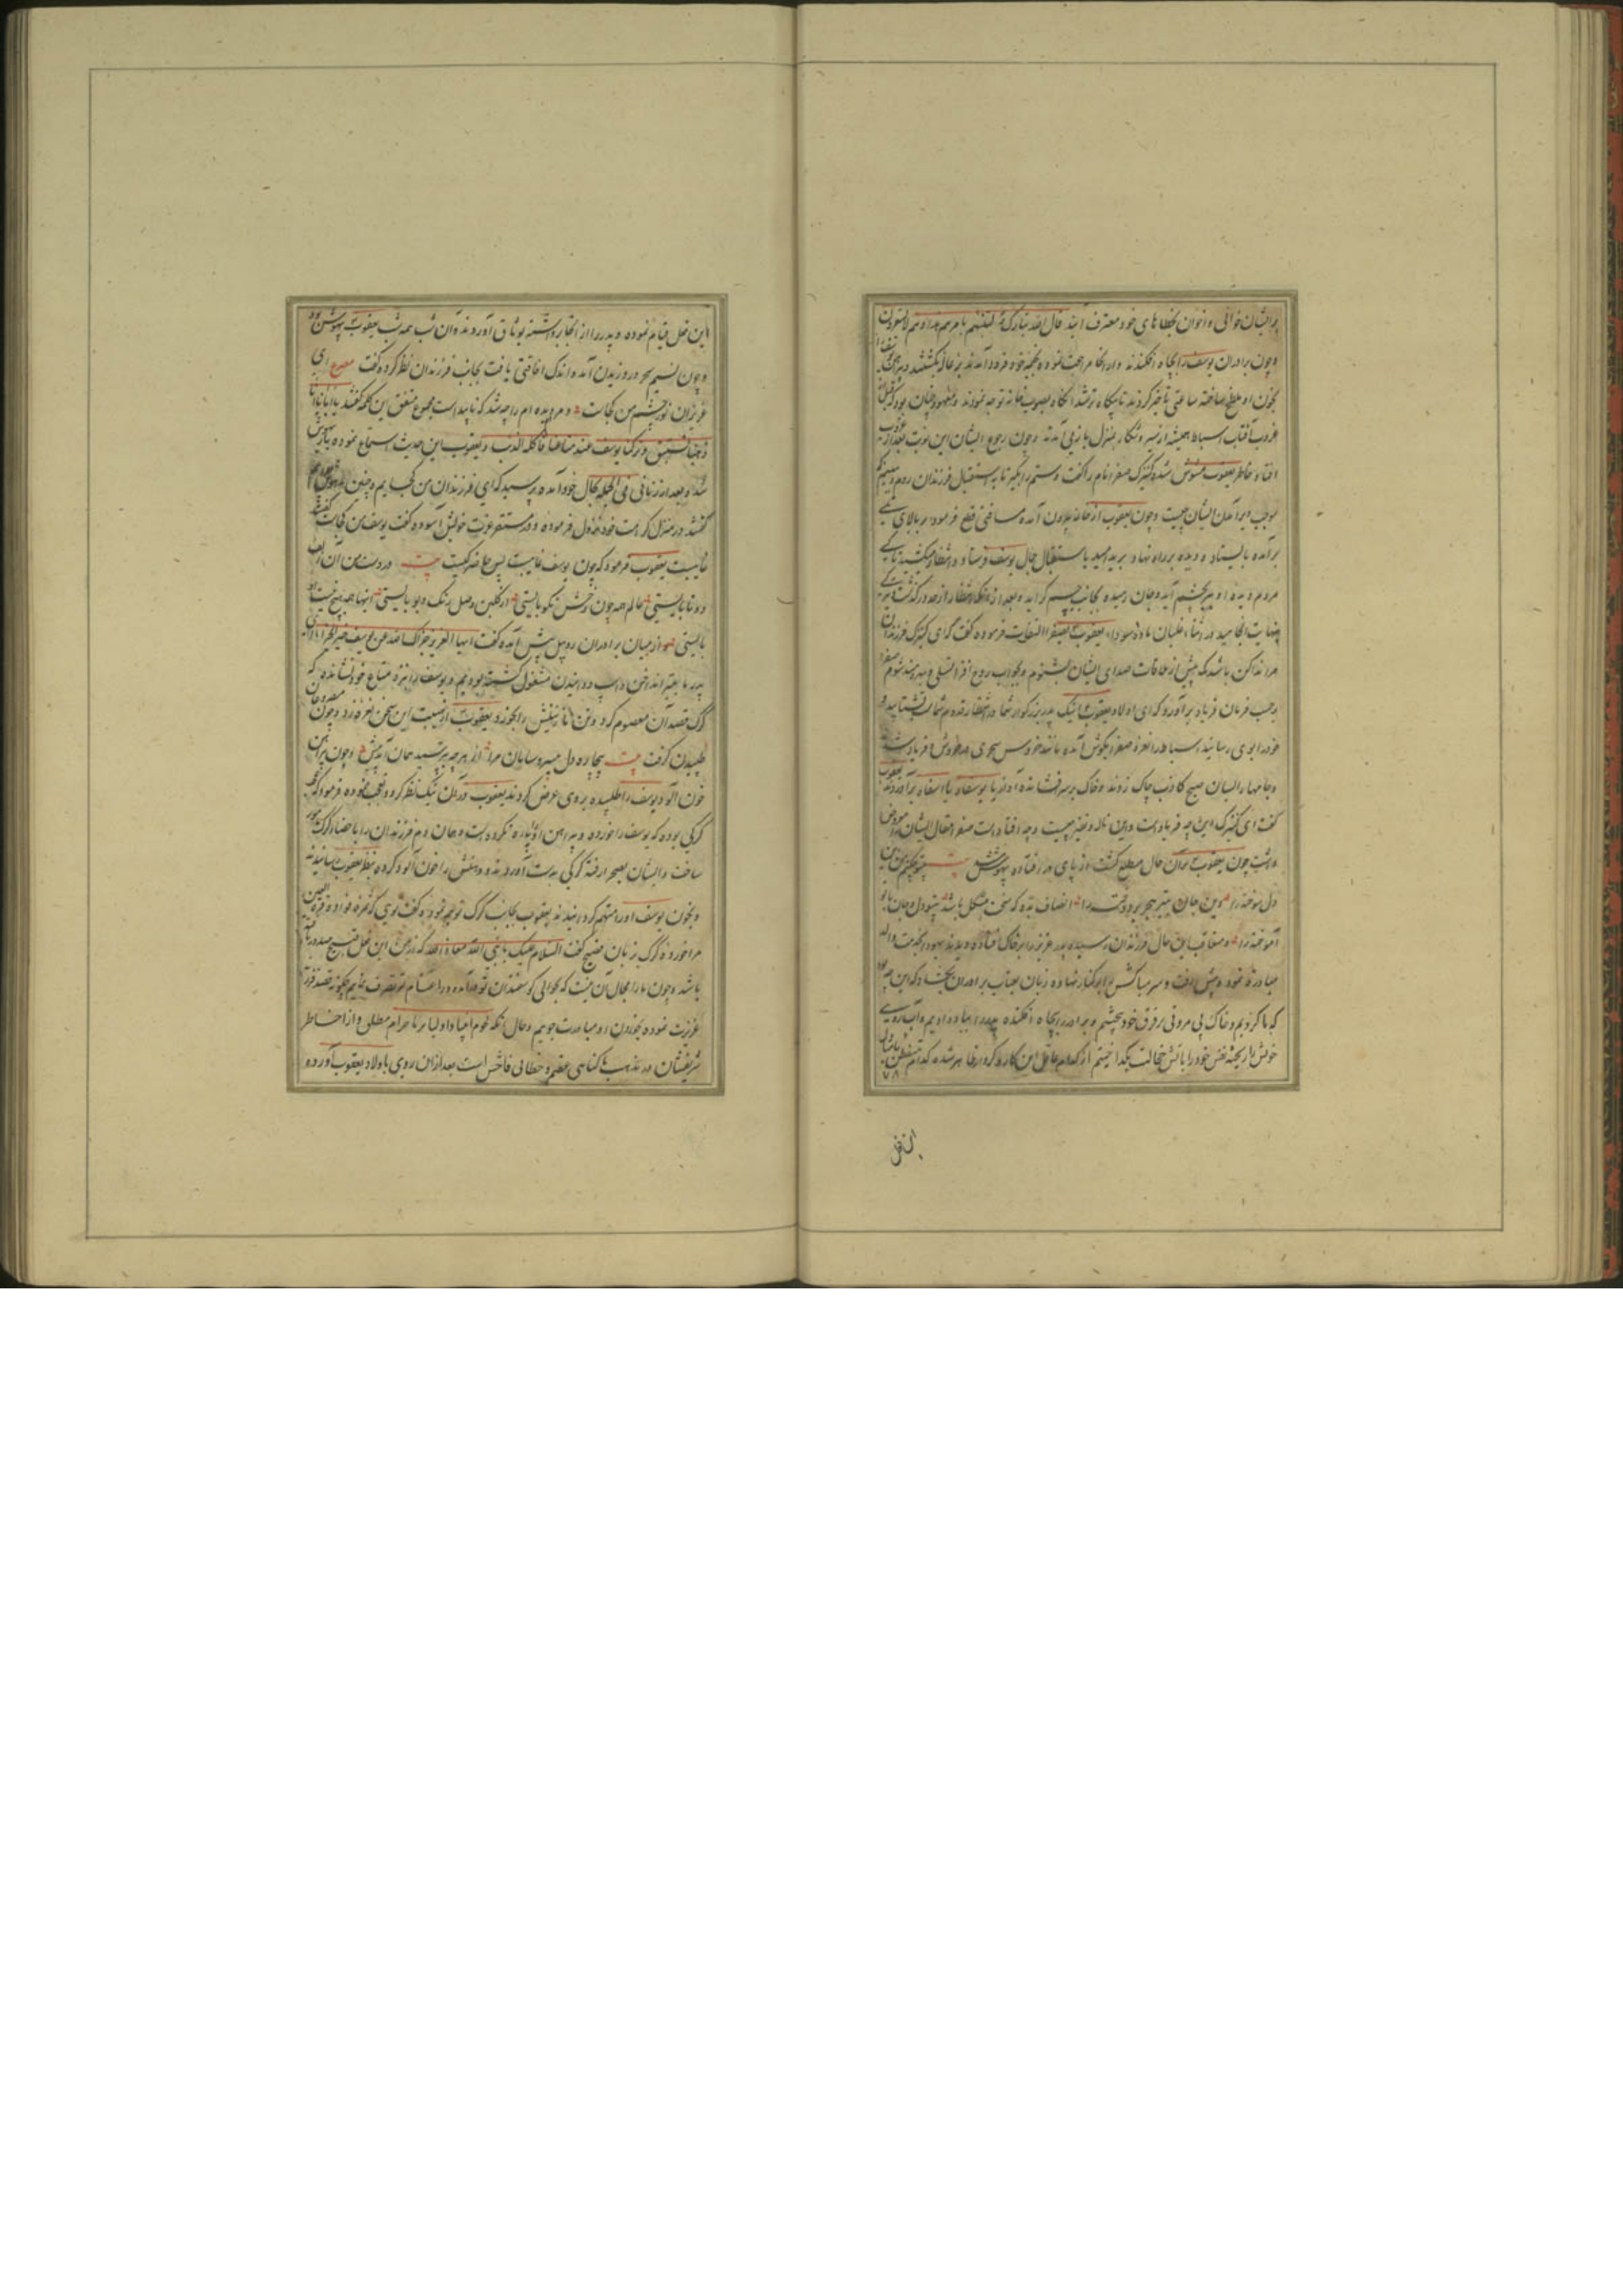 بر ایشان خوانی و اخوان بخطاهای خود معترف آیند قال الله تبارک لتنبئنهم بامرهم هذا و هم لا یشعرون
و چون برادران یوسف را بچاه افکندند و از آنجا مراجعت نموده بخیمه خود فرود آمدند بزغاله بکشتند و پیراهن یوسف را
بخون او ملطخ ساخته ساعتی تاخیر کردند تا بیگاه تر شد آنگاه بصوب خانه توجه نمودند و معهود چنان بود که قبل از
غروب آفتاب اسباط همیشه از سیر و شکار بمنزل باز می آمدند و چون رجوع ایشان این نوبت بعد از غروب
افتاد خاطر یعقوب مشوش شد و کنیزک صفرا نام را گفت دستم را بگیر تا به استقبال فرزندان روم و ببینم که
موجب دیر آمدن ایشان چیست و چون یعقوب از خانه بیرون آمده مسافتی قطع فرمود بر بالای
برآمده بایستاد و دیده بر راه نهاد و برید امید باستقبال جمال یوسف فرستاد و انتظار میکشید تا کی
مردم دیده او بچشم آید و جان رسیده بجانب جسم گراید و بعد از آنکه انتظار از حد درگذشت و
بنهایت انجامید در اثناء غلبان ماده سودا یعقوب بصفرا التفات فرموده گفت که ای کنیزک فرزندان
مرا ندا کن باشد که پیش از ملاقات صدای ایشان بشنوم و بجواب روح افزا تسلی و بهره مند شوم صفرا
برحسب فرمان فریاد برآورد که ای اولاد یعقوب اینک پدر بزرگوار شما در انتظار قدوم شماست بشتابید و
خود را بوی رسانید اسباط را نعره صفرا بگوش آمده مانند خروس سحری در خروش و فریاد شدند
و جامها را بسان صبح کاذب چاک زدند و خاک بر سر فشانده آواز یا یوسفاه یا اسفاه برآوردند یعقوب
گفت ای کنیزک این چه فریادست و این ناله و نفیر چیست و چه افتاده است صفرا مقال ایشان را معروض
داشت چون یعقوب بر آن حال مطلع گشت از پای در افتاده بیهوش شد بیت بیتو چکنم من این
دل سوخته را وین جان بتیر هجر بر دوخته را انصاف بده که سخت مشکل باشد بیتو دل و جان با تو
آموخته را و متعاقب این حال فرزندان رسیده پدر عزیز را بر خاک افتاده دیدند یهودا بخدمت والد
مبادرت نمود و پیش رفت و سر مبارکش را بر کنار نهاده زبان بعتاب برادران بگشاد که این چه بود
که ما کردیم و خاک بی مروتی بر فرق خود بیختیم و برادر را بچاه افکنده پدر را بباد دادیم و آب روی
خویش را ریخته نفس خود را باتش خجالت بگداختیم از کدام عاقل این کار و کردار ظاهر شده کدام
۷۸
این فعل
این فعل قیام نموده و پدر را از آنجا برداشته بوثاق آوردند و آن شب همه شب یعقوب بیهوش بود
و چون نسیم سحر در وزیدن آمد و اندک افاقتی یافت بجانب فرزندان نظر کرده گفت مصرع ای
عزیزان نور چشم من کجاست و مردم دیده ام را چه شد که ناپیداست مجموع متفق این کلمه گفتند یا ابانا انا
ذهبنا نستبق و ترکنا یوسف عند متاعنا فاکله الذئب و یعقوب این حدیث استماع نموده باز بیهوش
شد و بعد از زمانی فی الجمله بحال خود آمده پرسید که ای فرزندان من کجایم و چنین بیهوش چرایم
گفتند در منزل کرامت خود نزول فرموده و در مستقر عزت خویش آسوده گفت یوسف من کجاست گفتند
غایبست یعقوب فرمود که چون یوسف غایبست پس حاضر کیست بیت در دست من آن زلف
دو تا بایستی عالم همه چون رخش نکو بایستی از گلبن وصل رنگ و بو بایستی اینها همه هیچ نیست او
بایستی و از میان برادران روبیل پیش آمده گفت ایها العزیز جزاک الله عن یوسف خیر الجزاء ای
پدر ما بتیر انداختن و اسب دوانیدن مشغول گشته بودیم و یوسف را نزد متاع خود نشانده که
گرگ قصد آن معصوم کرد و تن نازنینش را بخورد یعقوب از هیبت این سخن نعره زد و چون مصروعان
طپیدن گرفت بیت بیچاره دل بی سر و سامان مرا از هرچه بترسید همان آمد پیش و چون پیراهن
خون آلود یوسف را طلبیده بر وی عرض کردند یعقوب در آن نیک نظر کرد و تعجب نموده فرمود که عجب
گرگی بوده که یوسف را خورده و پیراهن او پاره نکرده و همان دم فرزندان را باحضار گرگ مامور
ساخت و ایشان بصحرا رفته گرگی بدست آوردند و دهنش را خون آلود کرده بنظر یعقوب رسانیدند
و بخون یوسف او را متهم گردانیدند یعقوب بجانب گرگ توجه نموده گفت توئی که ثمره فواد و قرة العین
مرا خورده گرگ بزبان فصیح گفت السلام علیک یا نبی الله معاذ الله که از من این فعل قبیح صدور یافته
باشد و چون ما را مجال آن نیست که بحوالی گوسفندان تو در آمده در اغنام تو تصرف نمایم چگونه قصد قرة
عزیزت نموده بخوردن او مبادرت جوییم و حال آنکه لحوم انبیا و اولیا بر ما حرام مطلق و آزار خاطر
شریفشان در مذهب ما گناهی عظیم و خطائی فاحش است بعد از آن روی باولاد یعقوب آورده